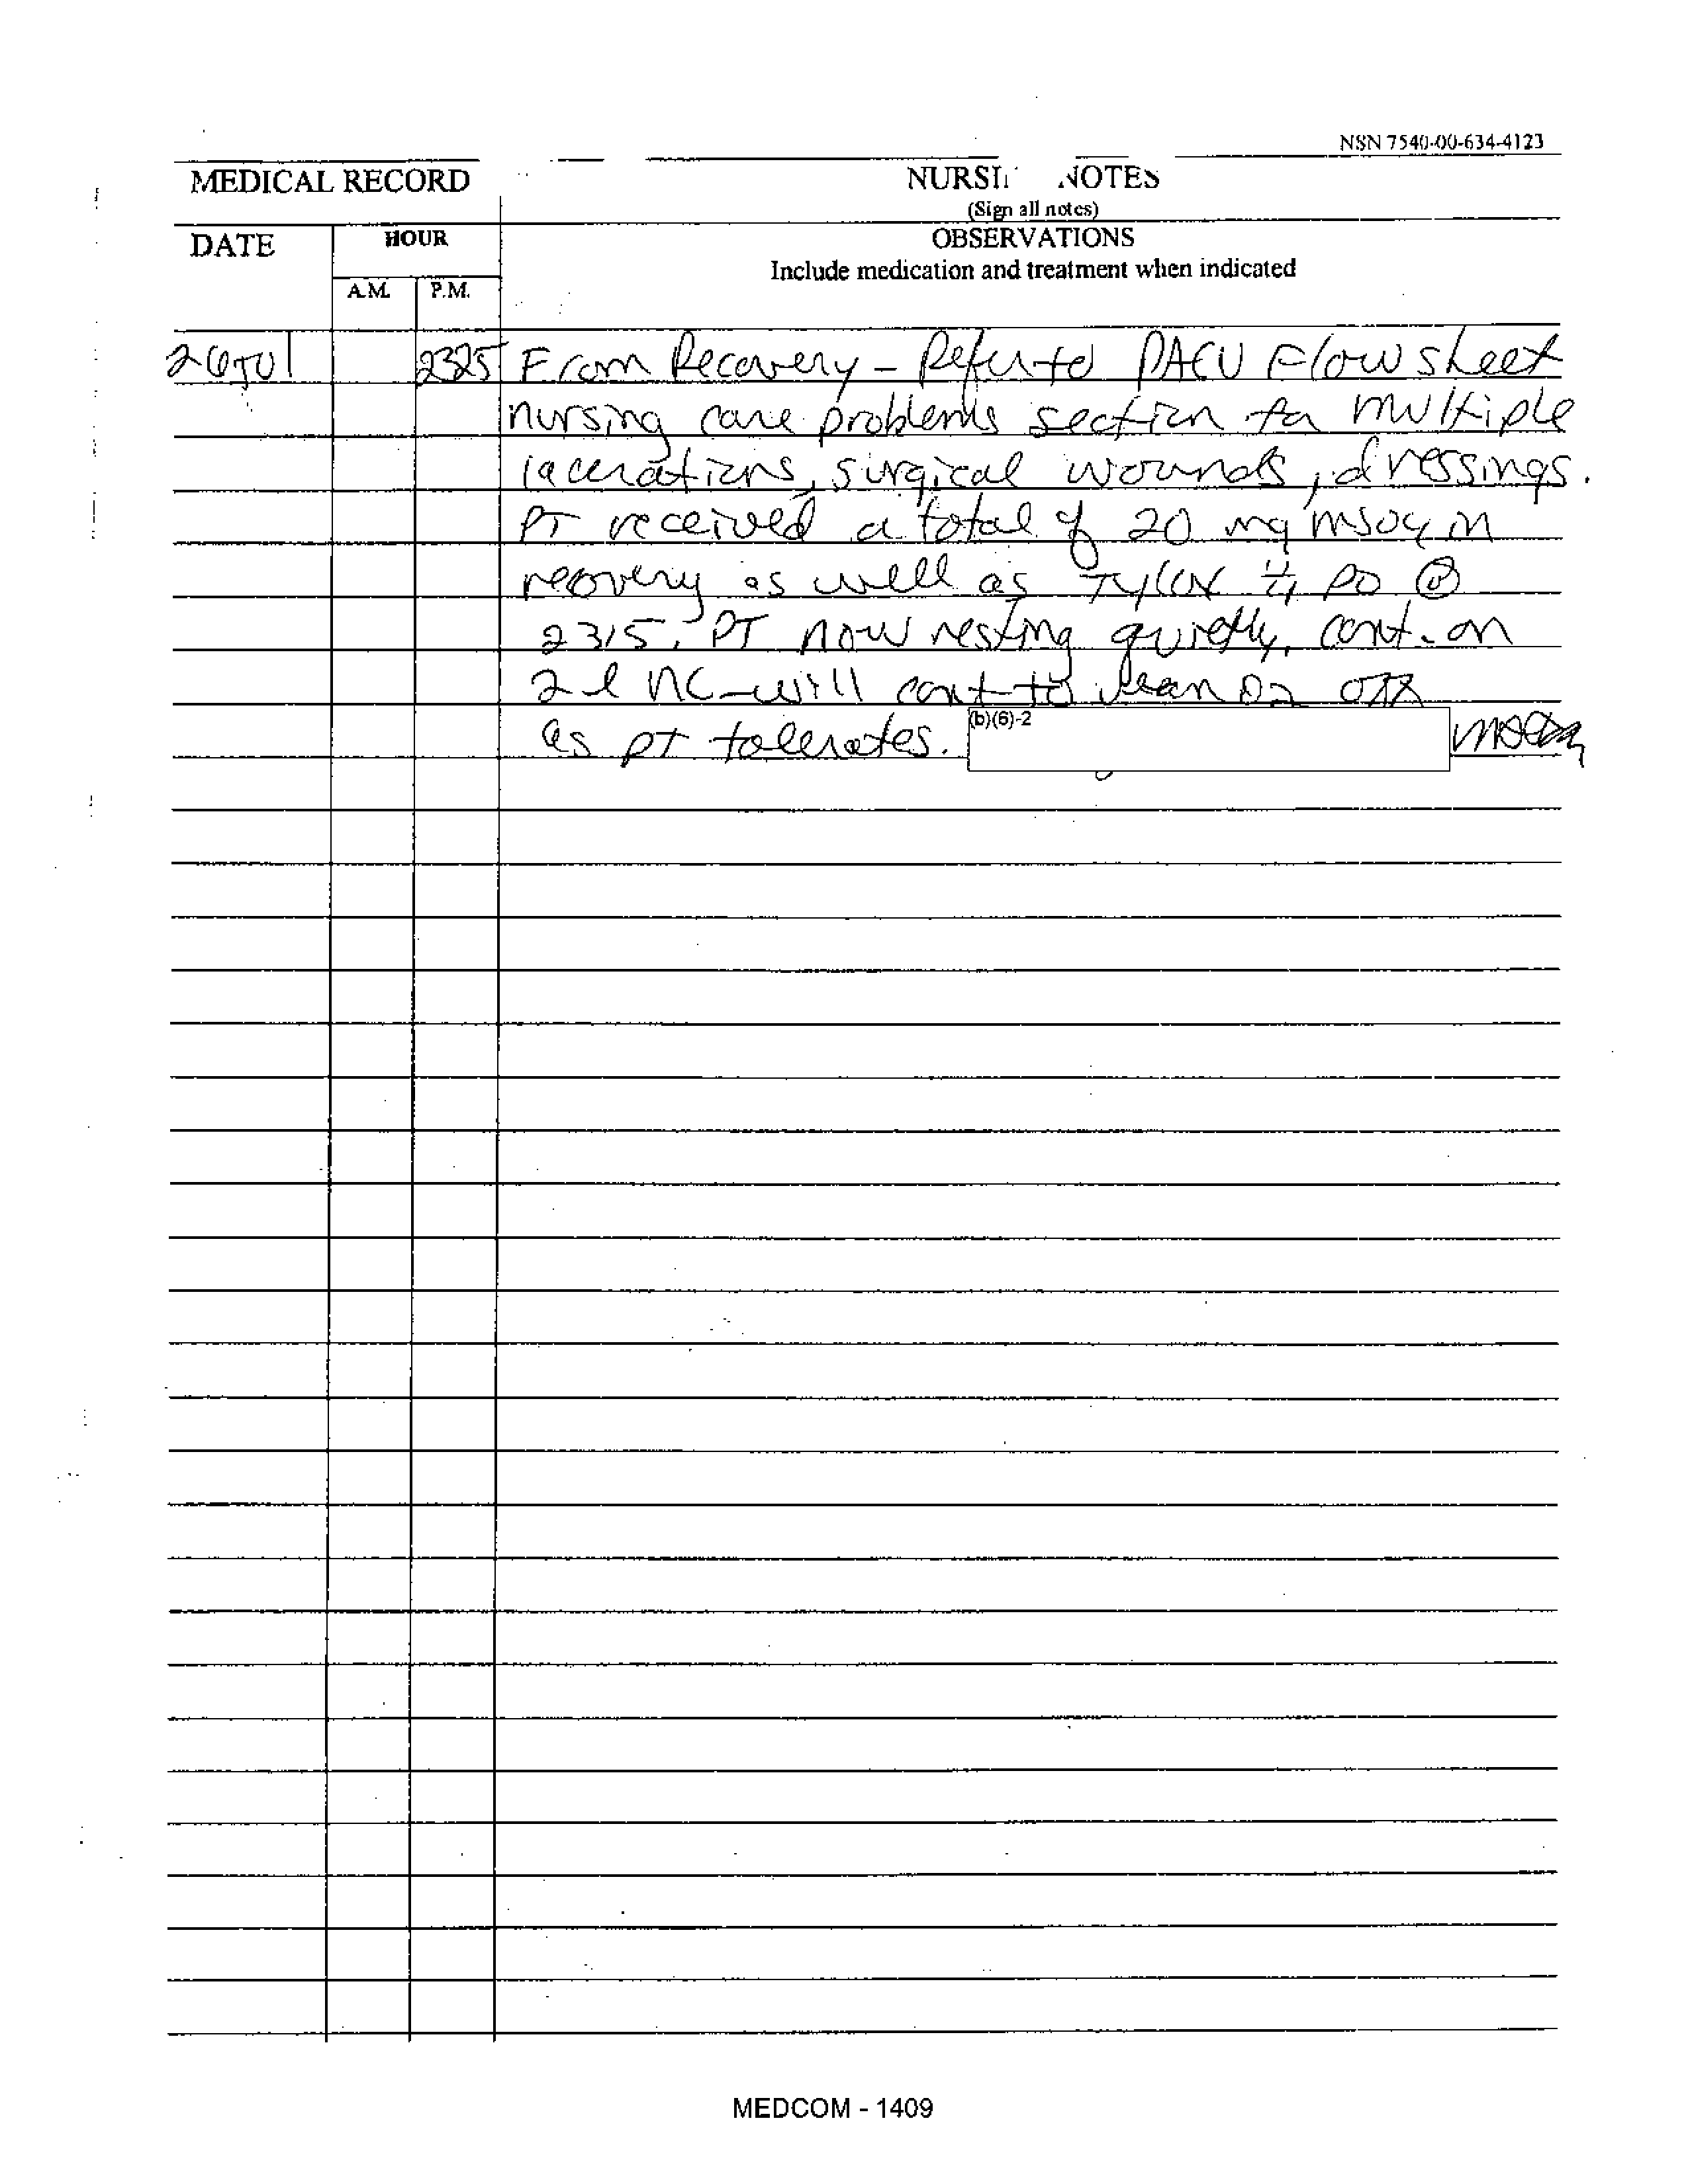 NSN 7540-00-634-4123
MEDICAL RECORD
NURSI NOTES
(Sign all notes)
DATE
HOUR
OBSERVATIONS
Include medication and treatment when indicated
A.M. P.M.
26JUl 2325 From Recovery - Refer to PACU Flowsheet
nursing care problems section for multiple
lacerations, surgical wounds, dressings.
PT received a total of 20 mg MSO4 in
recovery as well as Tylox PO @
2315. PT now resting quietly, cont. on
2 l NC - will cont to wean O2 off
as pt tolerates.
(b)(6)-2
MEDCOM - 1409